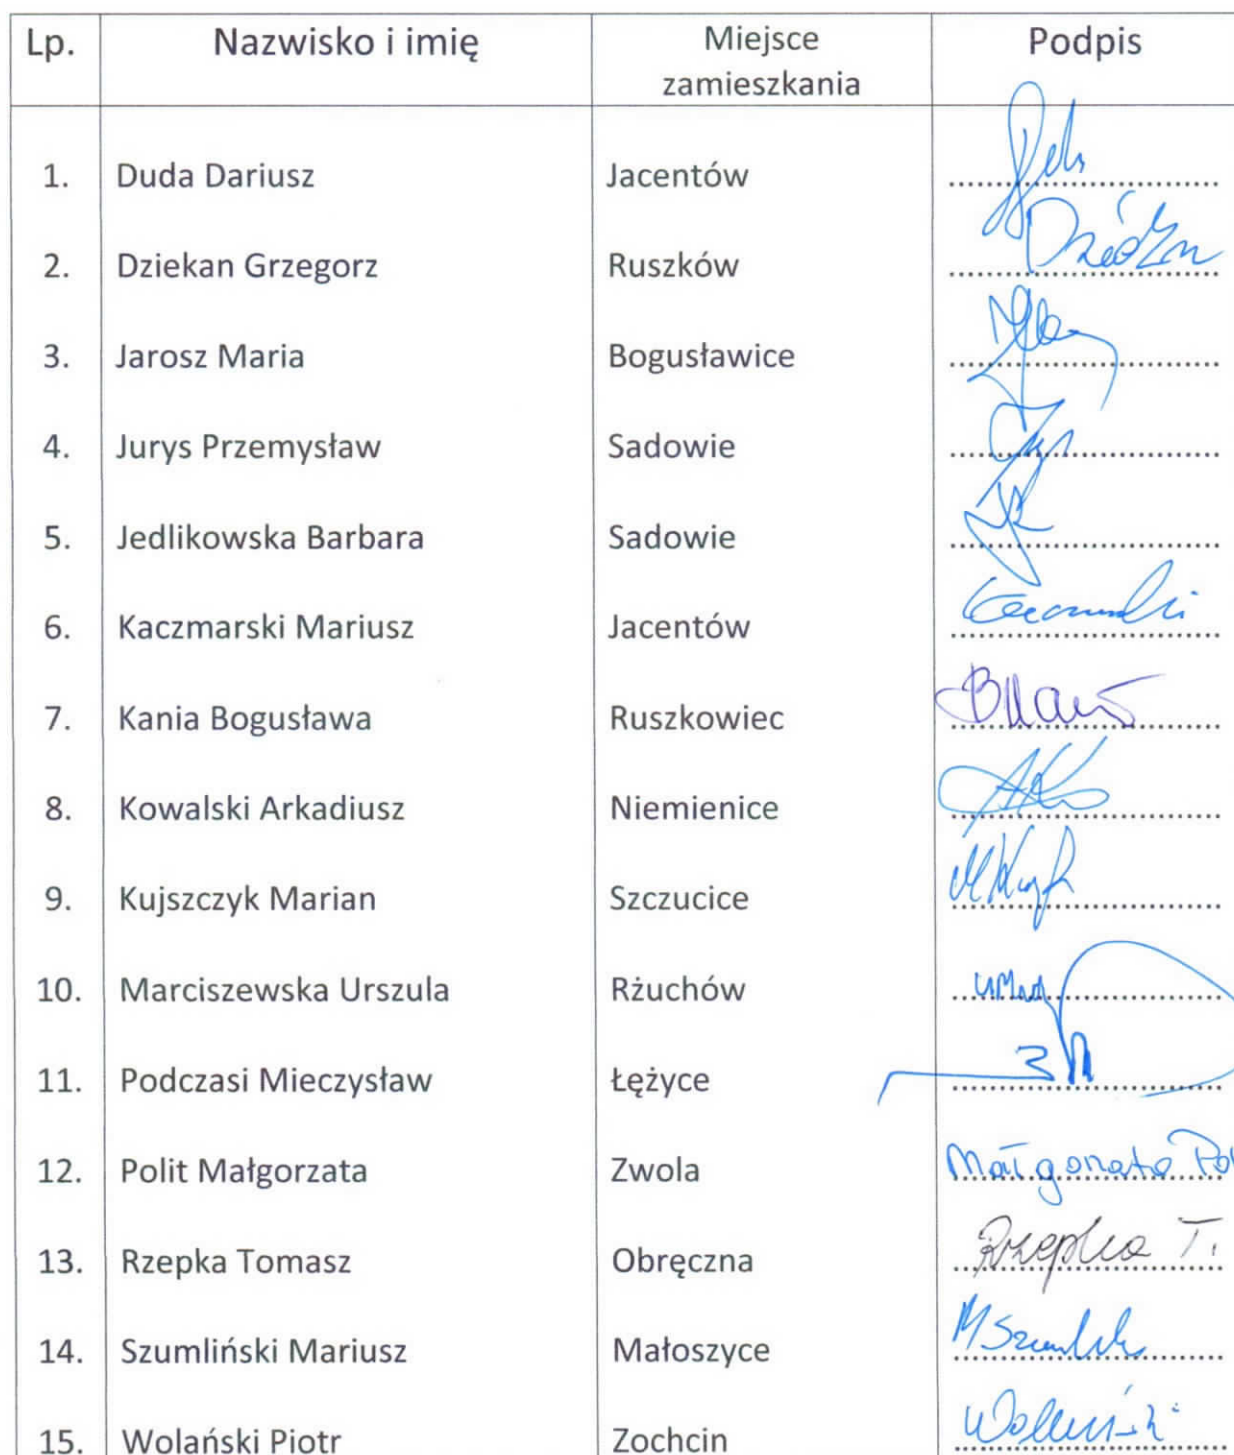 Lp. Nazwisko i imię Miejsce zamieszkania Podpis
1. Duda Dariusz Jacentów
2. Dziekan Grzegorz Ruszków
3. Jarosz Maria Bogusławice
4. Jurys Przemysław Sadowie
5. Jedlikowska Barbara Sadowie
6. Kaczmarski Mariusz Jacentów
7. Kania Bogusława Ruszkowiec
8. Kowalski Arkadiusz Niemienice
9. Kujszczyk Marian Szczucice
10. Marciszewska Urszula Rżuchów
11. Podczasi Mieczysław Łężyce
12. Polit Małgorzata Zwola Małgorzata Pol
13. Rzepka Tomasz Obręczna Rzepka T.
14. Szumliński Mariusz Małoszyce
15. Wolański Piotr Zochcin